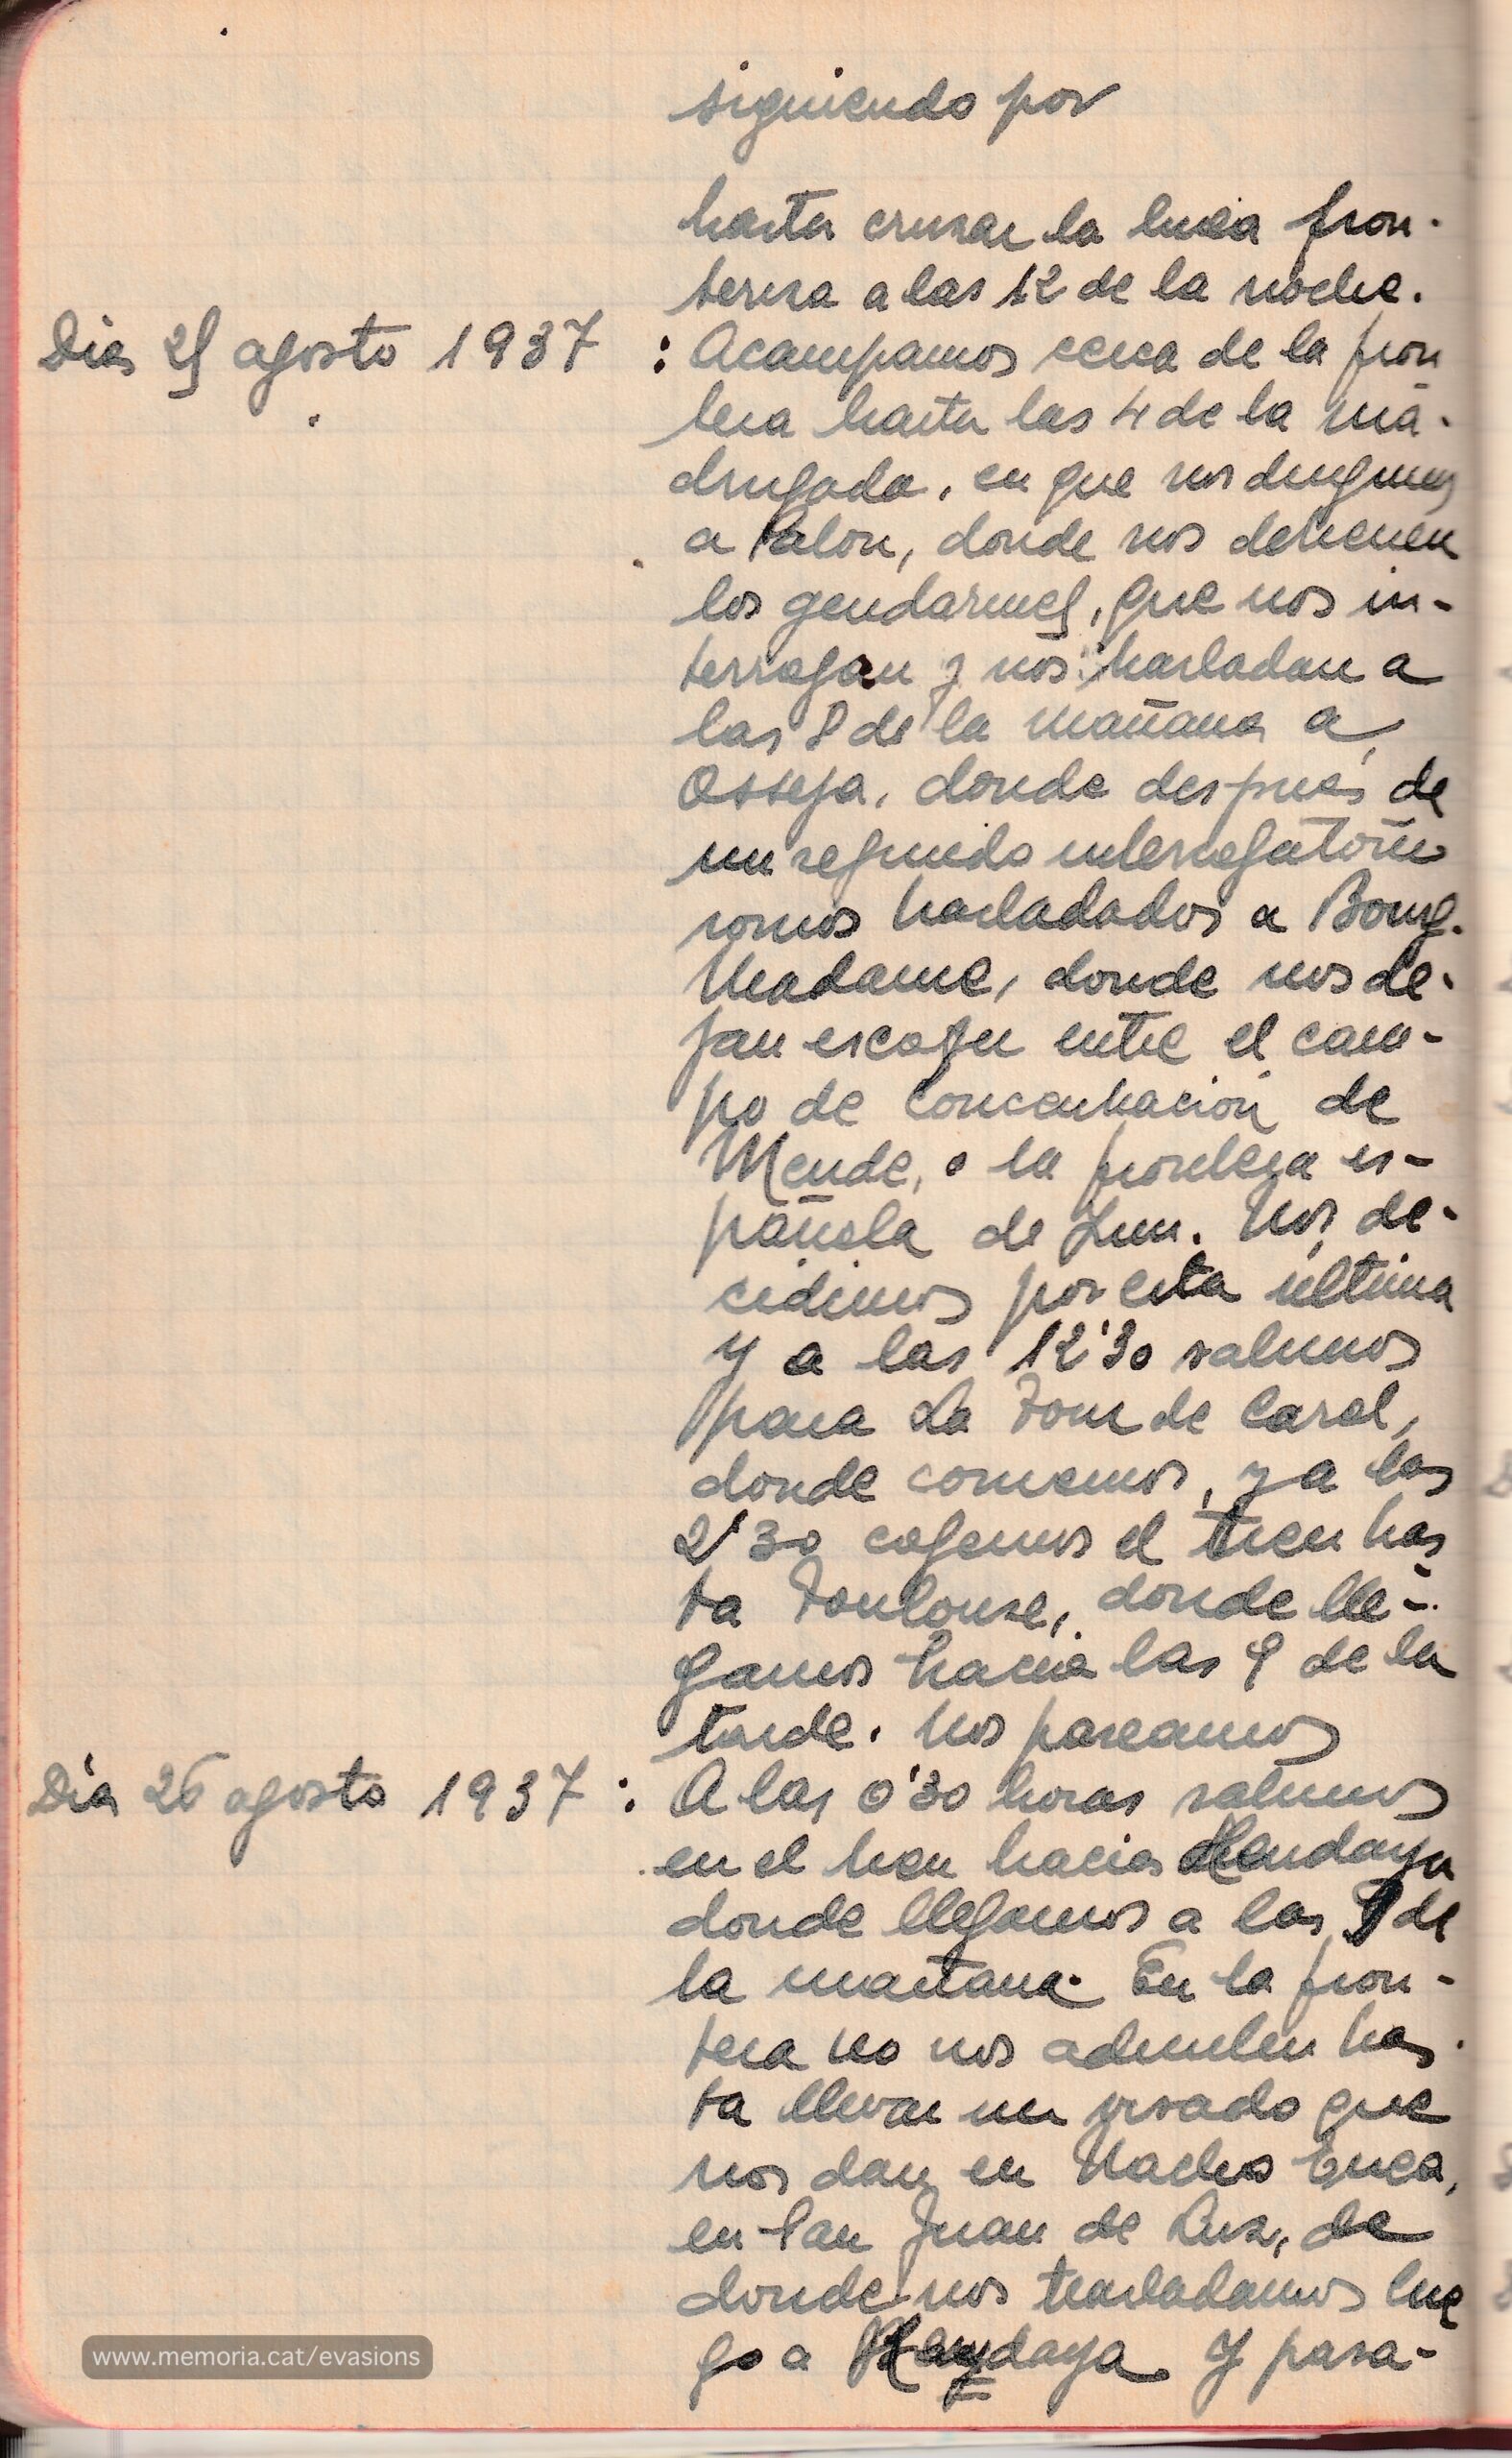 siguiendo por
hasta cruzar la linea fron-
teriza a las 12 de la noche.
Dia 25 agosto 1937 : Acampamos cerca de la fron
tera hasta las 4 de la ma-
drugada, en que nos dirigimos
a Palou, donde nos detienen
los gendarmes, que nos in-
terrogan y nos trasladan a
las 8 de la mañana a
Osseja, donde después de
un segundo interrogatorio
somos trasladados a Bourg-
Madame, donde nos de-
jan escojer entre el cam-
po de concentración de
Mende, o la frontera es-
pañola de Irun. Nos de-
cidimos por esta última
y a las 12'30 salimos
para La Tour de Carol,
donde comemos, y a las
2'30 cojemos el tren has
ta Toulouse, donde lle-
gamos hacia las 9 de la
tarde. Nos paseamos
Dia 26 agosto 1937 : A las 0'30 horas salimos
en el tren hacia Hendaya
donde llegamos a las 9 de
la mañana. En la fron-
tera no nos admiten has
ta llevar un visado que
nos dan en Nacho Enea,
en San Juan de Luz, de
donde nos trasladamos lue
go a Hendaya y pasa-
www.memoria.cat/evasions